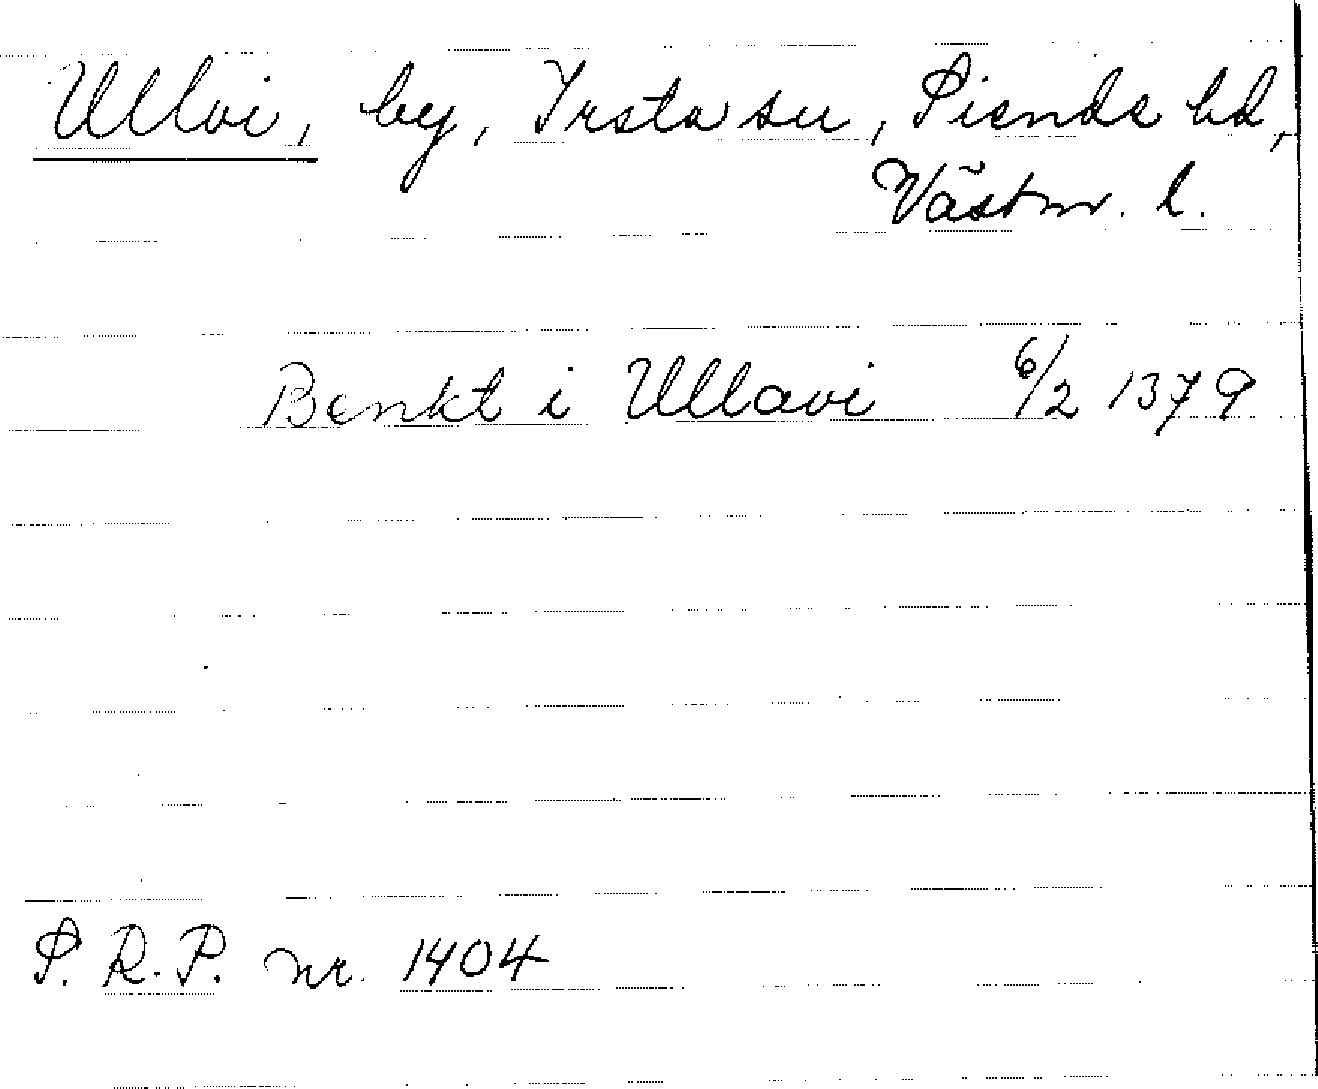 Ullvi, by, Irsta sn, Siende hd,
Västm. l.
Benkt i Ullavi 6/2 1379
S. R. P. nr. 1404